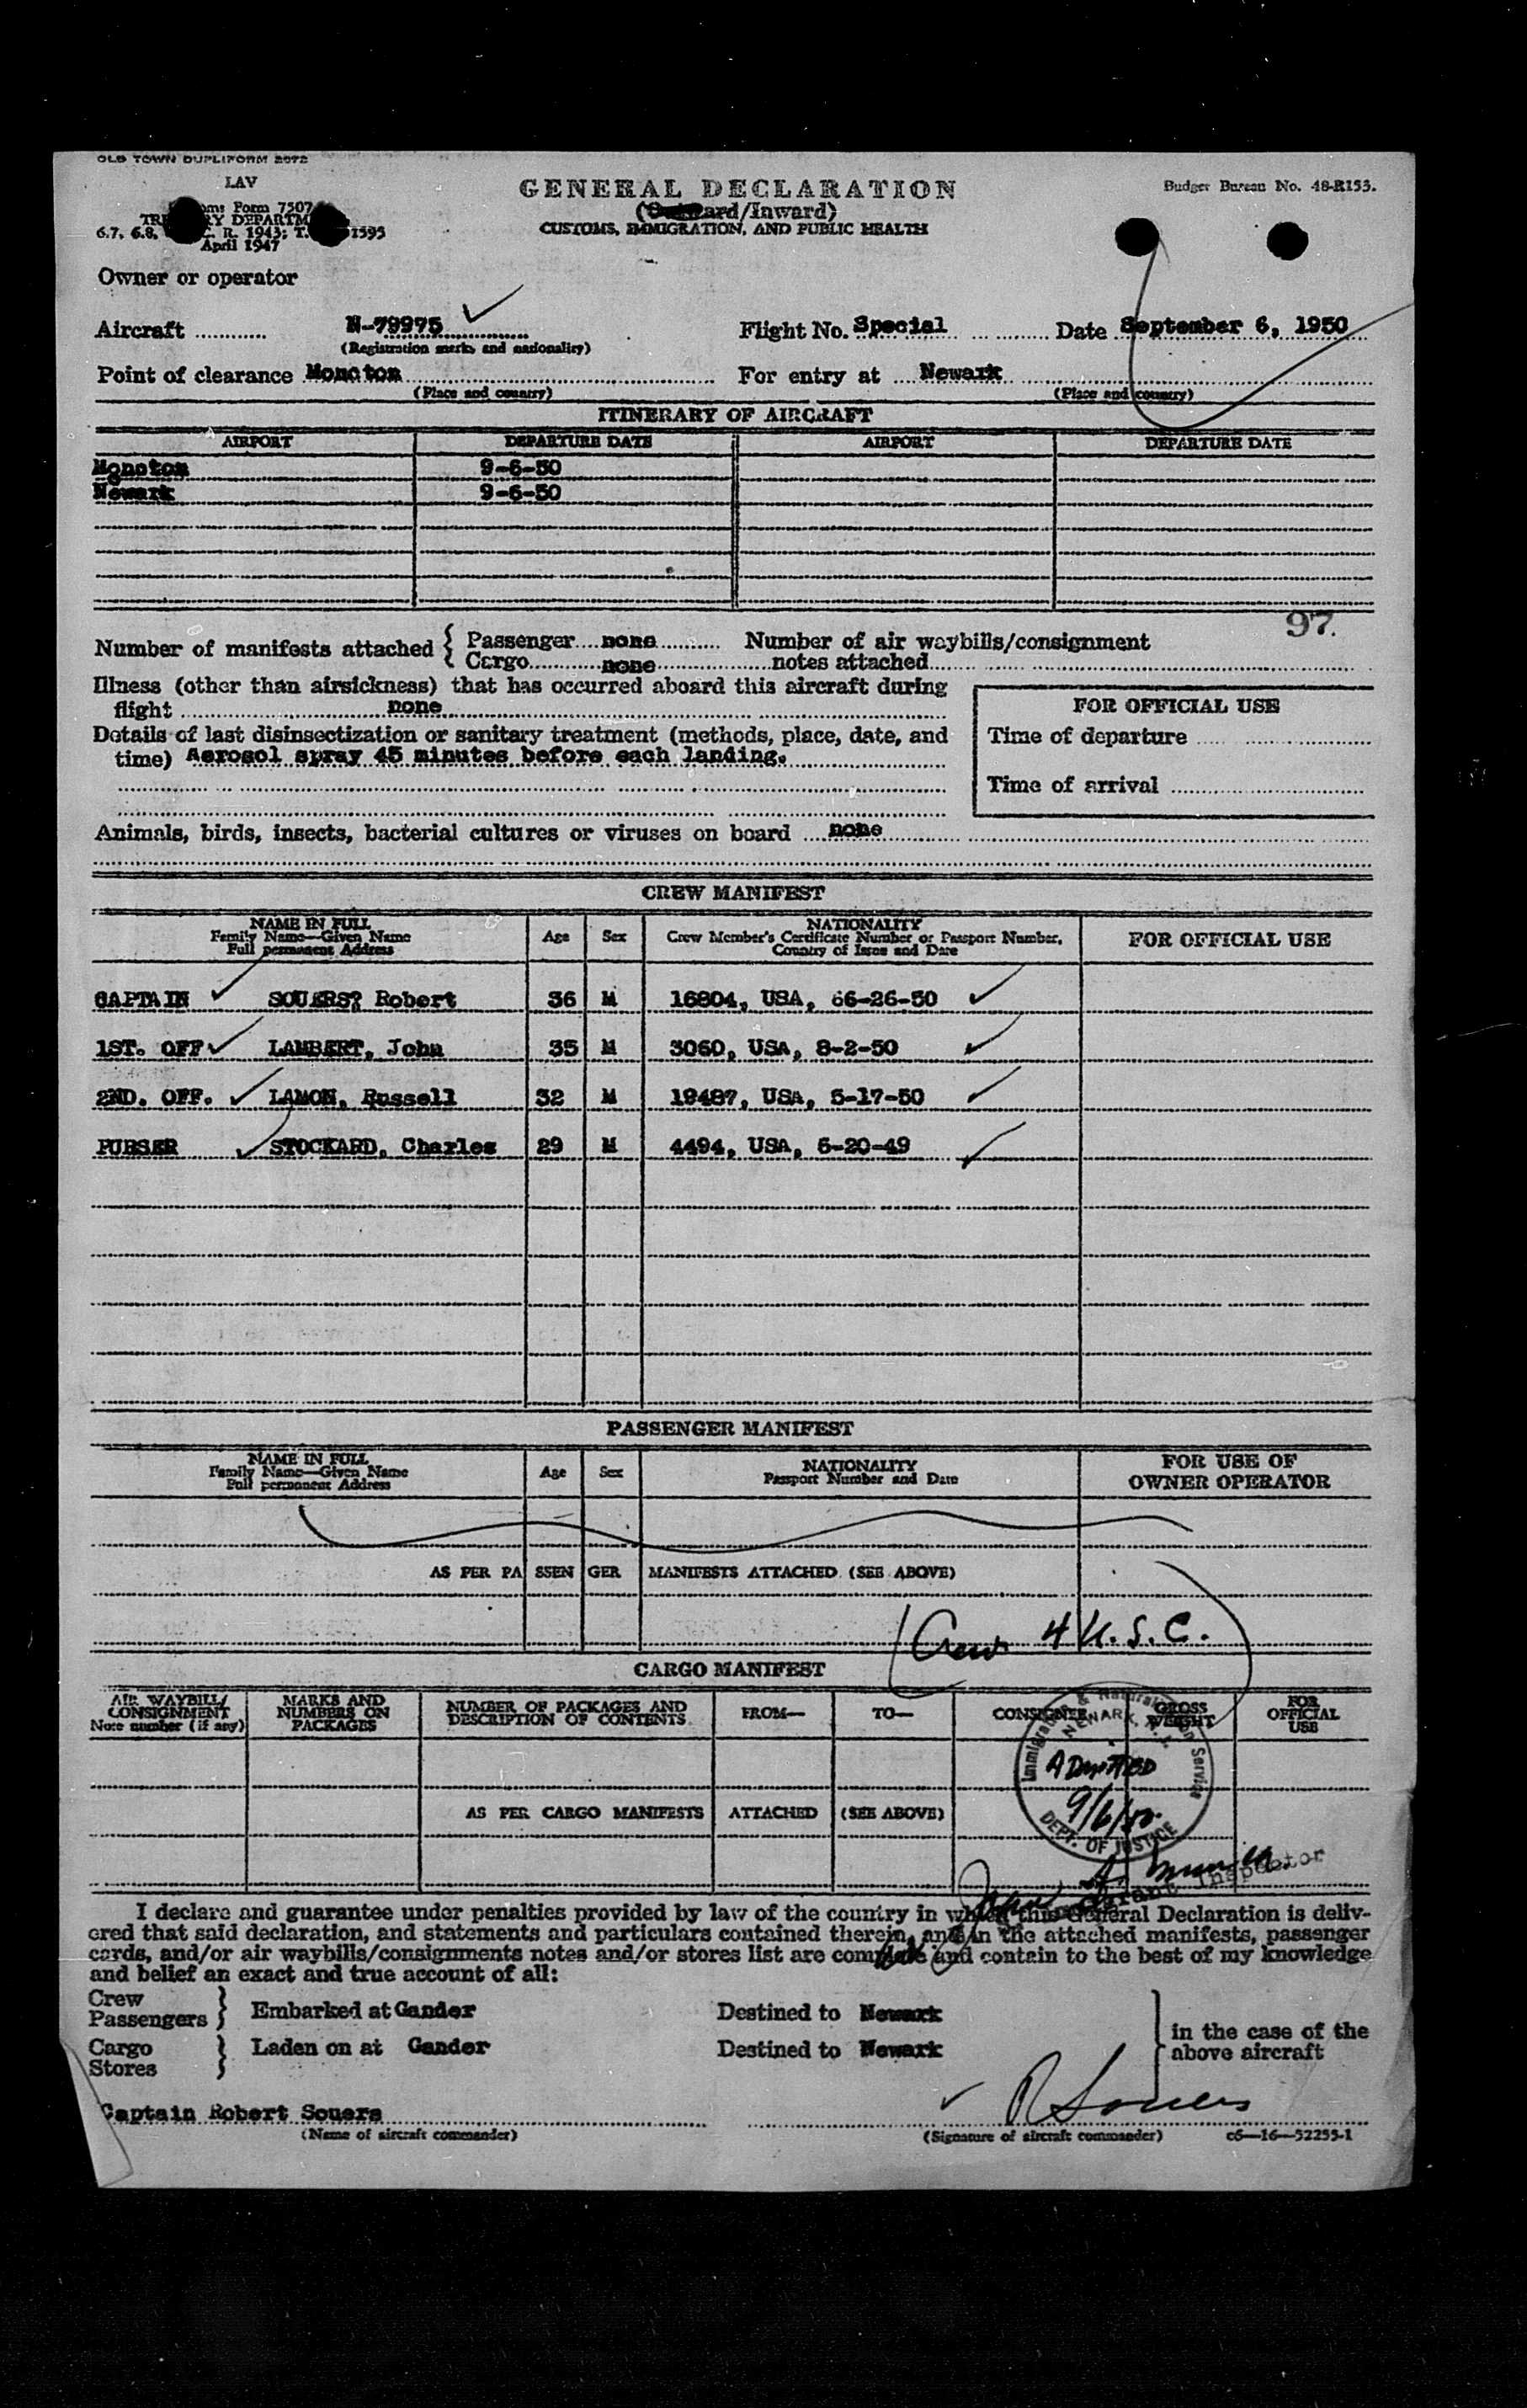 OLD TOWN DUPLIFORM 2072
LAV
Form 7507
6.7, 6.8, C. R. 1943; T. 1595
April 1947
GENERAL DECLARATION
/Inward)
CUSTOMS, IMMIGRATION, AND PUBLIC HEALTH
Budget Bureau No. 48-R153.
Owner or operator
Aircraft N-79975 Flight No. Special Date September 6, 1950
(Registration marks and nationality)
Point of clearance Moncton For entry at Newark
(Place and country) (Place and country)
ITINERARY OF AIRCRAFT
AIRPORT DEPARTURE DATE AIRPORT DEPARTURE DATE
Moncton 9-6-50
Newark 9-6-50
97.
Number of manifests attached { Passenger none Number of air waybills/consignment
Cargo none notes attached
Illness (other than airsickness) that has occurred aboard this aircraft during
flight none
FOR OFFICIAL USE
Details of last disinsectization or sanitary treatment (methods, place, date, and
time) Aerosol spray 45 minutes before each landing.
Time of departure
Time of arrival
Animals, birds, insects, bacterial cultures or viruses on board none
CREW MANIFEST
NAME IN FULL Age Sex NATIONALITY FOR OFFICIAL USE
Family Name—Given Name Crew Member's Certificate Number or Passport Number,
Full permanent Address Country of Issue and Date
CAPTAIN SOUERS? Robert 36 M 16804, USA, 66-26-50
1ST. OFF LAMBERT, John 35 M 3060, USA, 8-2-50
2ND. OFF. LAMON, Russell 32 M 19487, USA, 5-17-50
PURSER STOCKARD, Charles 29 M 4494, USA, 6-20-49
PASSENGER MANIFEST
NAME IN FULL Age Sex NATIONALITY FOR USE OF
Family Name—Given Name Passport Number and Date OWNER OPERATOR
Full permanent Address
AS PER PASSENGER MANIFESTS ATTACHED (SEE ABOVE)
Crew 4 U.S.C.
CARGO MANIFEST
AIR WAYBILL/ MARKS AND NUMBER OF PACKAGES AND FROM— TO— CONSIGNEE GROSS FOR
CONSIGNMENT NUMBERS ON DESCRIPTION OF CONTENTS WEIGHT OFFICIAL
Note number (if any) PACKAGES USE
Immigration & Naturalization Service
NEWARK, N. J.
ADMITTED
9/6/50
DEPT. OF JUSTICE
AS PER CARGO MANIFESTS ATTACHED (SEE ABOVE)
Inspector
I declare and guarantee under penalties provided by law of the country in which this General Declaration is deliv-
ered that said declaration, and statements and particulars contained therein, and in the attached manifests, passenger
cards, and/or air waybills/consignments notes and/or stores list are complete and contain to the best of my knowledge
and belief an exact and true account of all:
Crew
Passengers } Embarked at Gander Destined to Newark
Cargo
Stores } Laden on at Gander Destined to Newark
in the case of the
above aircraft
Captain Robert Souers R Souers
(Name of aircraft commander) (Signature of aircraft commander) c6—16—52255-1